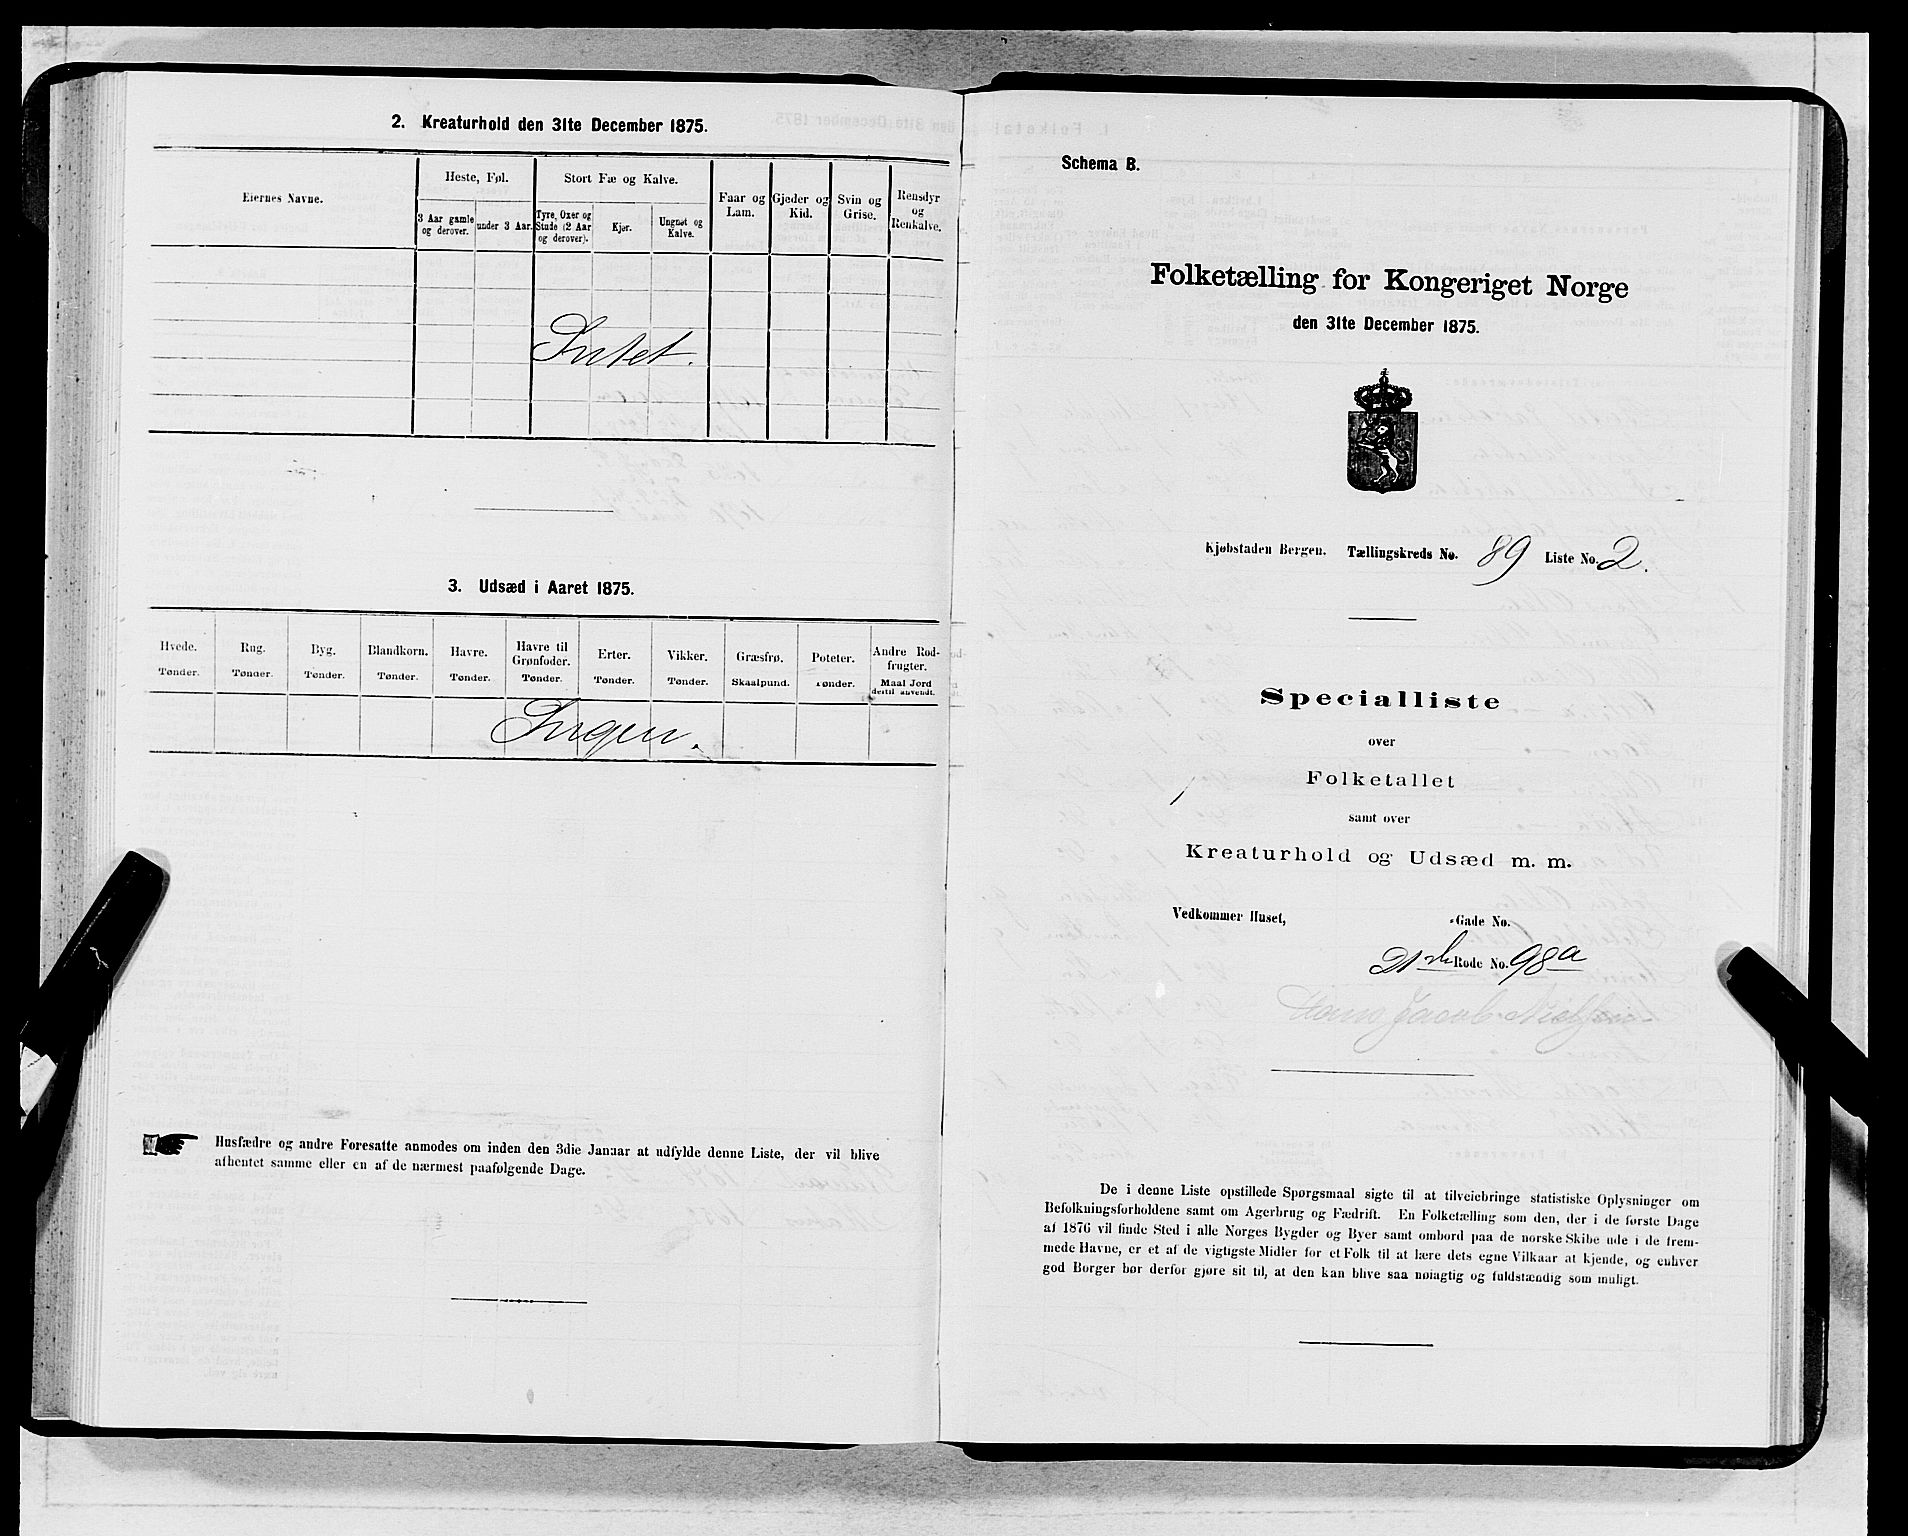 2. Kreaturhold den 31te December 1875.
Eiernes Navne.
Heste, Føl.
3 Aar gamle og derover.
under 3 Aar.
Stort Fæ og Kalve.
Tyre, Oxer og Stude (2 Aar og derover).
Kjør.
Ungnøt og Kalve.
Faar og Lam.
Gjeder og Kid.
Svin og Grise.
Rensdyr og Renkalve.
Intet.
3. Udsæd i Aaret 1875.
Hvede. Tønder.
Rug. Tønder.
Byg. Tønder.
Blandkorn. Tønder.
Havre. Tønder.
Havre til Grønfoder. Tønder.
Erter. Tønder.
Vikker. Tønder.
Græsfrø. Skaalpund.
Poteter. Tønder.
Andre Rodfrugter. Maal Jord dertil anvendt.
Ingen.
Husfædre og andre Foresatte anmodes om inden den 3die Januar at udfylde denne Liste, der vil blive
afhentet samme eller en af de nærmest paafølgende Dage.
Schema B.
Folketælling for Kongeriget Norge
den 31te December 1875.
Kjøbstaden Bergen. Tællingskreds No. 89 Liste No. 2.
Specialliste
over
Folketallet
samt over
Kreaturhold og Udsæd m. m.
Vedkommer Huset, -Gade No.
21de Rode No. 98a
Hans Jacob Nielsen
De i denne Liste opstillede Spørgsmaal sigte til at tilveiebringe statistiske Oplysninger om
Befolkningsforholdene samt om Agerbrug og Fædrift. En Folketælling som den, der i de første Dage
af 1876 vil finde Sted i alle Norges Bygder og Byer samt ombord paa de norske Skibe ude i de frem-
mede Havne, er et af de vigtigste Midler for et Folk til at lære dets egne Vilkaar at kjende, og enhver
god Borger bør derfor gjøre sit til, at den kan blive saa nøiagtig og fuldstændig som muligt.